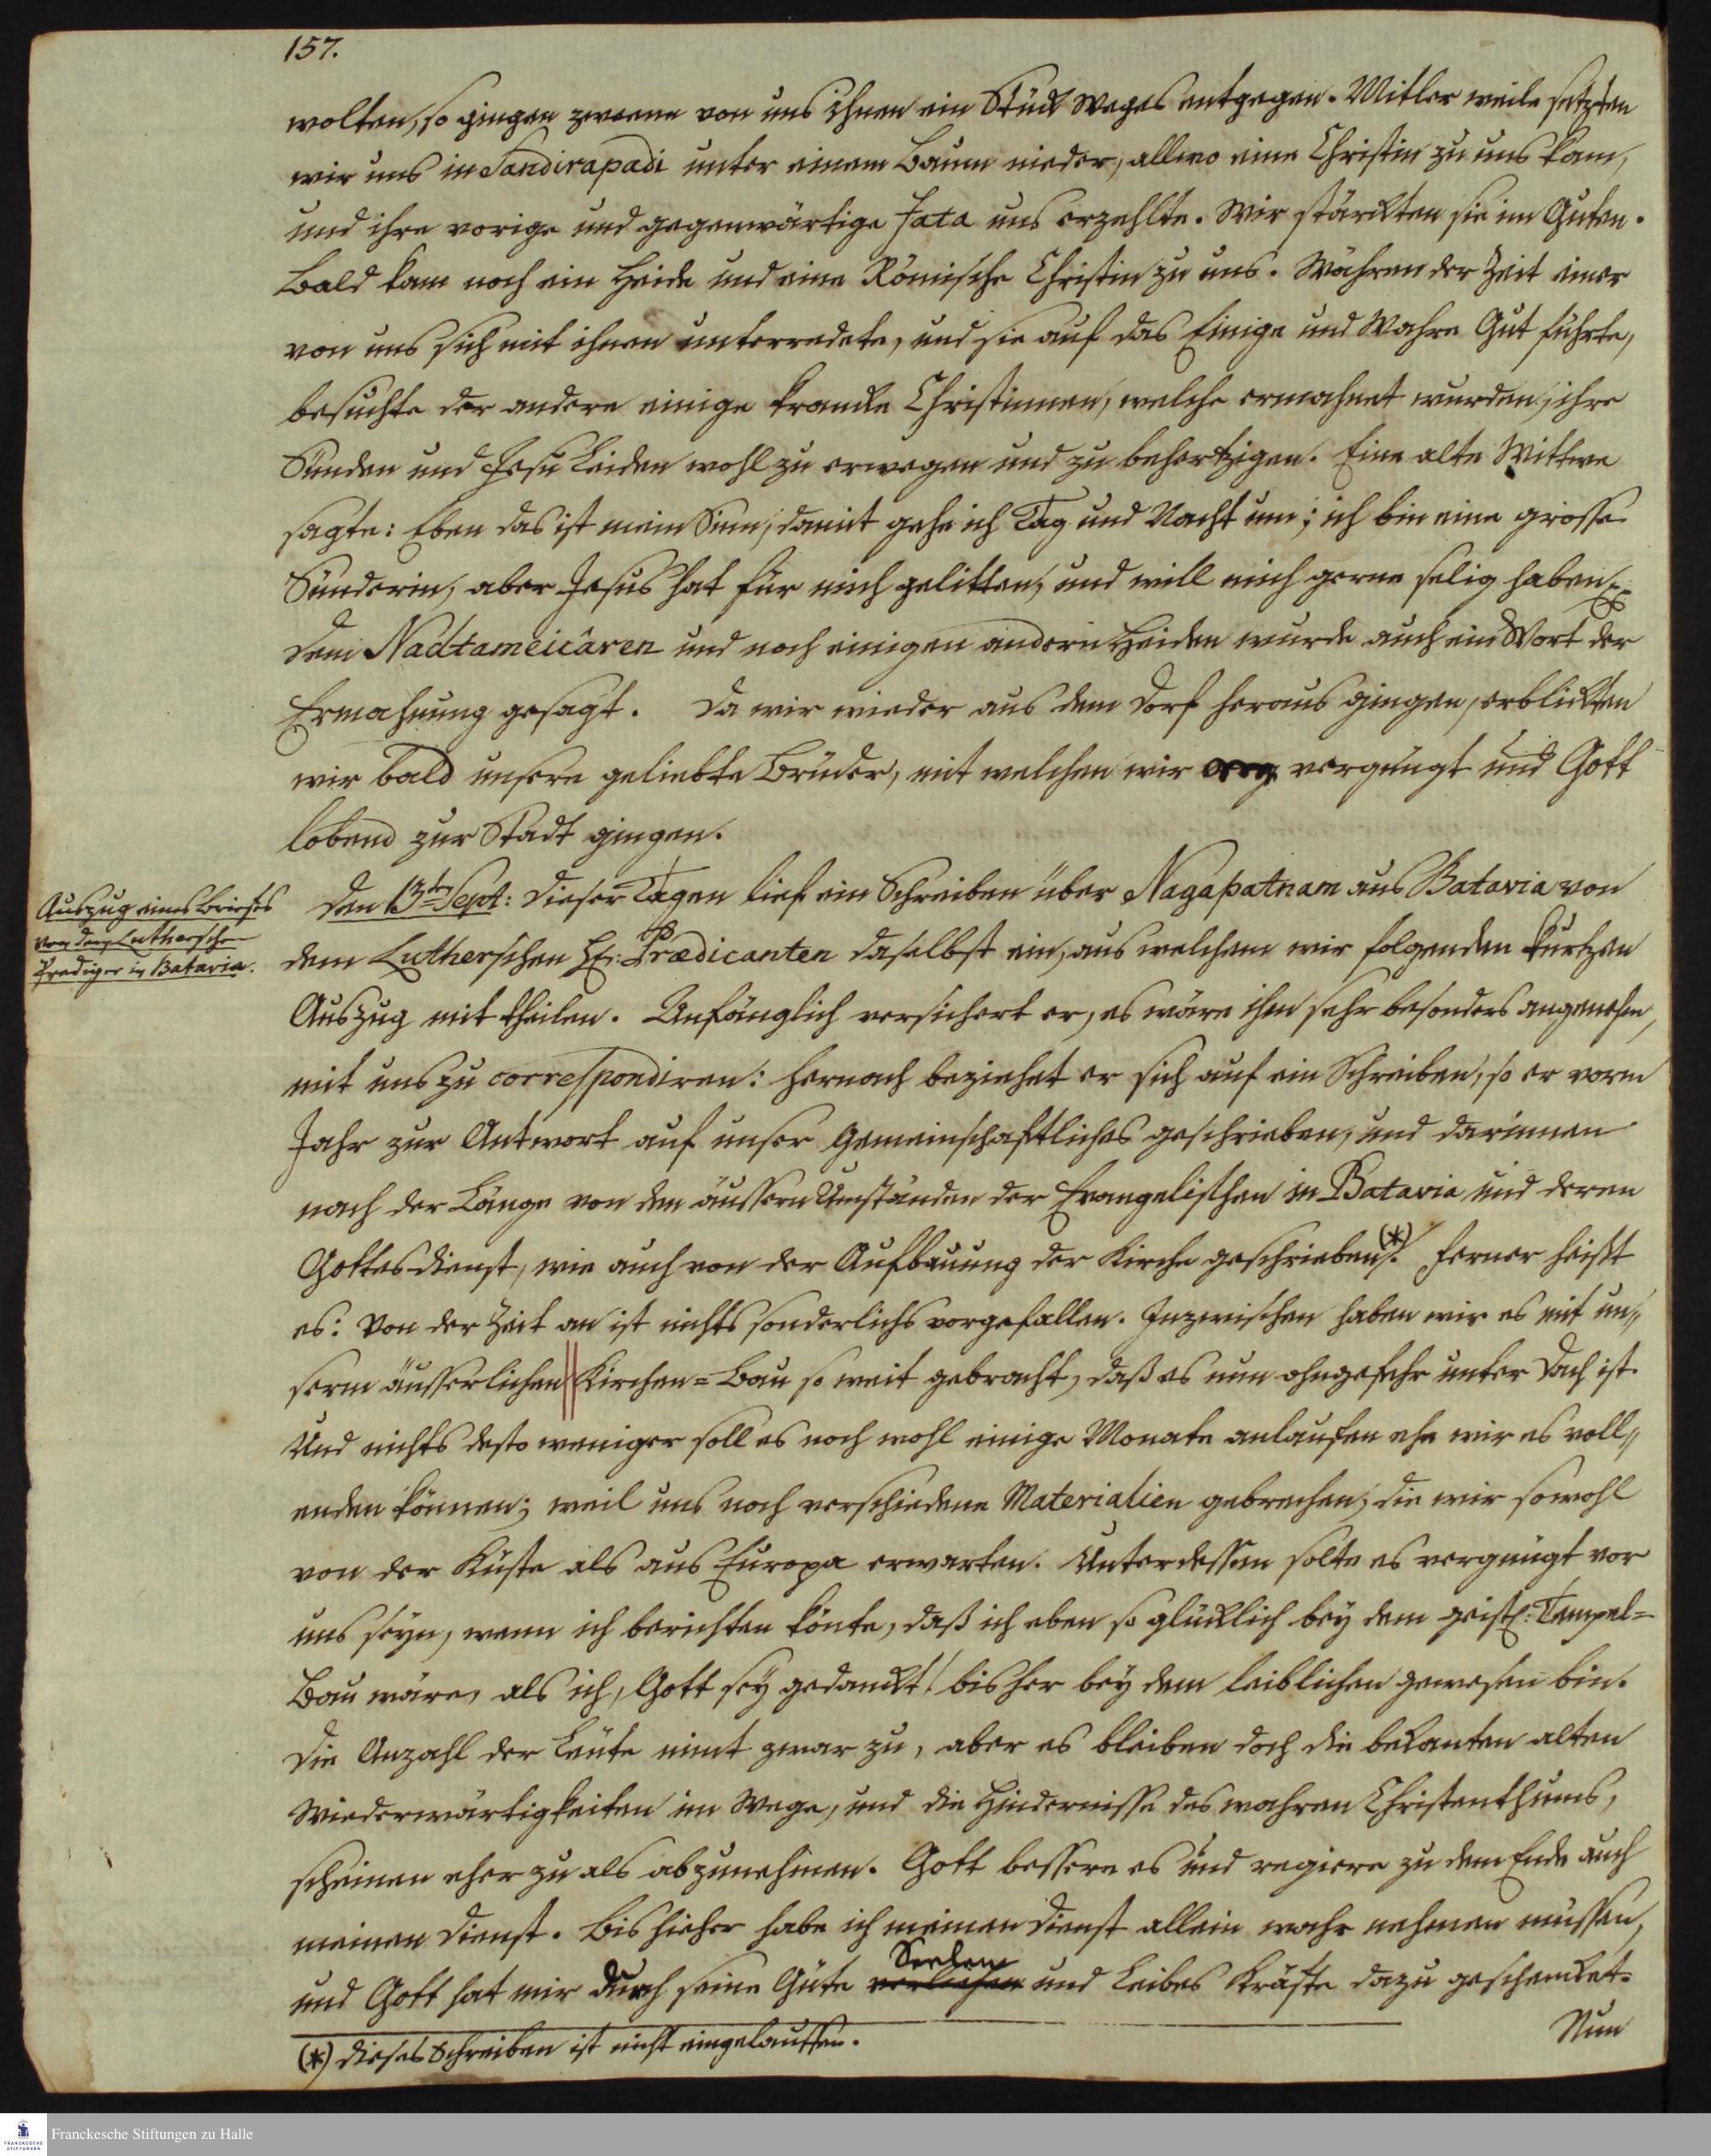 157.
wolten, so gingen zweene von uns ihnen ein Stück Weges entgegen. Mitler weile setzten
wir uns in Sandirapadi unter einem Baum nieder, allwo eine Christin zu uns kam,
und ihre vorige und gegenwärtige fata uns erzehlte. Wir stärckten sie im Guten.
Bald kam noch ein Heide und eine Römische Christin zu uns. Währender Zeit einer
von uns sich mit ihnen unterredete, und sie auf das Einige und Wahre Gut führte,
besuchte der andere einige krancke Christinnen, welche ermahnet wurden, ihre
Sünden und Jesu Leiden wohl zu erwegen und zu behertzigen. Eine alte Wittwe
sagte: Eben das ist mein Sinn, damit gehe ich Tag und Nacht um; ich bin eine grosse
Sünderin, aber Jesus hat für mich gelitten, und will mich gerne selig haben
Dem Nadtameicâren und noch einigen andern Heiden wurde auch ein Wort der
Ermahnung gesagt. Da wir wieder aus dem Dorf heraus gingen, erblickten
wir bald unsere geliebte Brüder, mit welchen wir vergnügt und Gott
lobend zur Stadt gingen.
Auszug eines Briefes
von dem Lutherschen
Prediger in Batavia.
Den 13ten Sept: Dieser Tagen lief ein Schreiben über Nagapatnam aus Batavia von
dem Lutherschen Hr: Prædicanten daselbst ein, aus welchem wir folgenden kurtzen
Auszug mit theilen. Anfänglich versichert er, es wäre ihm sehr besonders angenehm,
mit uns zu correspondiren: Hernach beziehet er sich auf ein Schreiben, so er vorm
Jahr zur Antwort auf unser Gemeinschaftliches geschrieben, und darinnen
nach der Länge von den äussern Umständen der Evangelischen in Batavia und deren
Gottesdienst, wie auch von der Aufbauung der Kirche geschrieben (*). Ferner heißt
es: Von der Zeit an ist nichts sonderlichs vorgefallen. Inzwischen haben wir es mit un„
serm äusserlichen Kirchen=Bau so weit gebracht, daß es nun ohngefehr unter Dach ist.
Und nichts desto weniger soll es noch wohl einige Monate anlaufen ehe wir es voll„
enden können; weil uns noch verschiedene Materialien gebrechen, die wir sowohl
von der Küste als aus Europa erwarten. Unterdessen solte es vergnügt vor
uns seyn, wenn ich berichten könte, daß ich eben so glücklich bey dem geistl: Tempel=
Bau wäre, als ich, Gott sey gedanckt! bisher bey dem leiblichen gewesen bin.
Die Anzahl der Leute nimt zwar zu, aber es bleiben doch die bekanten alten
Wiederwärtigkeiten im Wege, und die Hindernisse des wahren Christenthums,
scheinen eher zu als abzunehmen. Gott bessere es und regiere zu dem Ende auch
meinen Dienst. Bis hieher habe ich meinen Dienst allein wahr nehmen müssen,
und Gott hat mir durch seine Güte Seelen und Leibes Kräfte dazu geschencket.
Nun
(*) Dieses Schreiben ist nicht eingelauffen.
Franckesche Stiftungen zu Halle